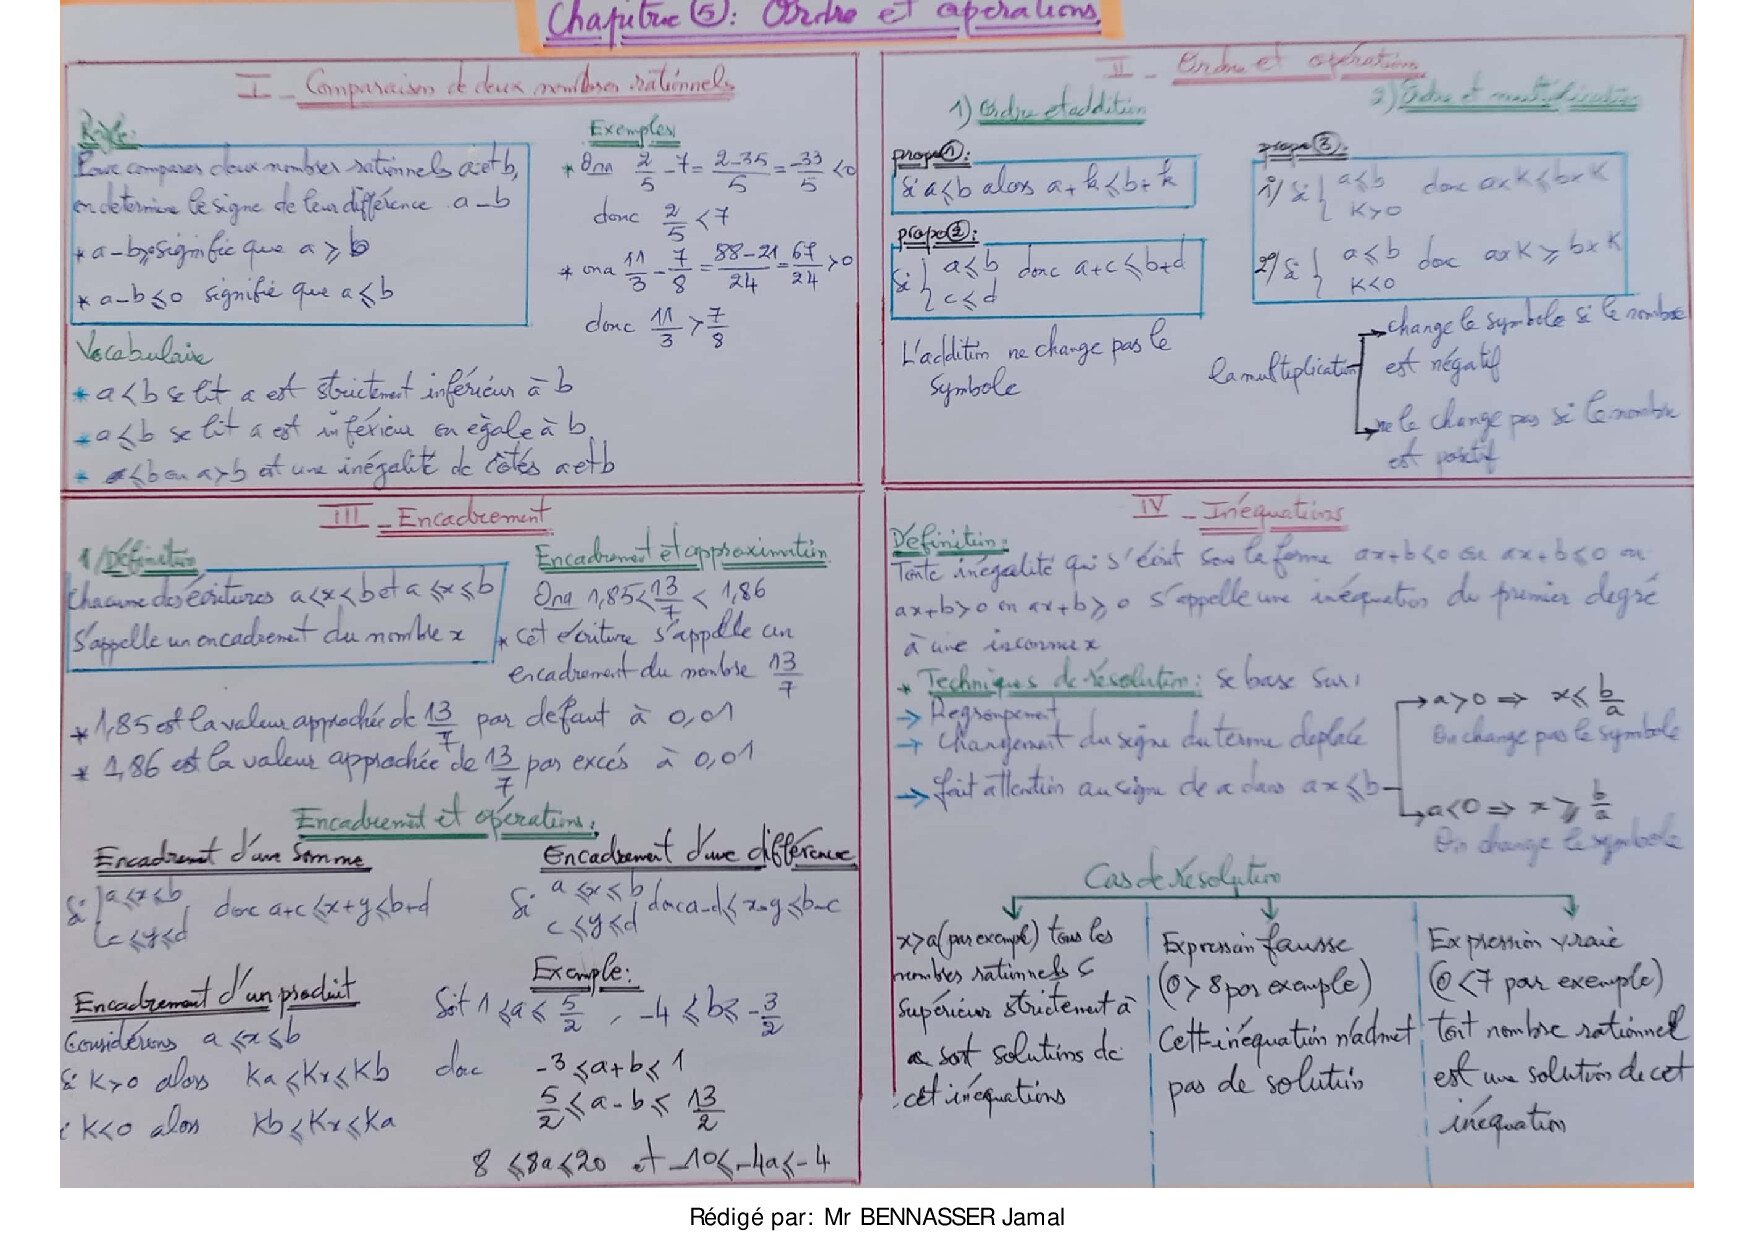 Chapitre ⑤: Ordre et opérations.
I - Comparaison de deux nombres rationnels
Règle:
Pour comparer deux nombres rationnels a et b,
on determine le signe de leur différence a-b
* a-b≥0 signifie que a ≥ b
* a-b ≤ 0 signifie que a ≤ b
Exemples
* Ona 2/5 - 7 = 2-35/5 = -33/5 < 0
donc 2/5 < 7
* ona 11/3 - 7/8 = 88-21/24 = 67/24 > 0
donc 11/3 > 7/8
Vocabulaire
* a < b se lit a est strictement inférieur à b
* a ≤ b se lit a est inférieur ou égale à b
* a<b ou a>b est une inégalité de côtés a et b
II - Ordre et opérations
1) Ordre et addition
prope①:
Si a ≤ b alors a + k ≤ b + k
prope②:
Si { a ≤ b
c ≤ d donc a+c ≤ b+d
L'addition ne change pas le
symbole
2) Ordre et multiplication
prope③:
1°/ Si { a ≤ b
K>0 donc axK ≤ bxK
2°/ Si { a ≤ b
K<0 donc axK ≥ bxK
la multiplication
change le symbole si le nombre
est négatif
ne le change pas si le nombre
est positif
III - Encadrement
1/ Définition
Chacune des écritures a<x<b et a ≤ x ≤ b
s'appelle un encadrement du nombre x
Encadrement et approximation
Ona 1,85 < 13/7 < 1,86
* cet écriture s'appelle un
encadrement du nombre 13/7
* 1,85 est la valeur approchée de 13/7 par défaut à 0,01
* 1,86 est la valeur approchée de 13/7 par excés à 0,01
Encadrement et opérations:
Encadrement d'une Somme
Si { a ≤ x ≤ b
c ≤ y ≤ d donc a+c ≤ x+y ≤ b+d
Encadrement d'une différence
Si a ≤ x ≤ b
c ≤ y ≤ d donc a-d ≤ x-y ≤ b-c
Encadrement d'un produit
Considérons a ≤ x ≤ b
Si K>0 alors Ka ≤ Kx ≤ Kb
K<0 alors Kb ≤ Kx ≤ Ka
Exemple:
Soit 1 ≤ a ≤ 5/2 , -4 ≤ b ≤ -3/2
donc -3 ≤ a+b ≤ 1
5/2 ≤ a-b ≤ 13/2
8 ≤ 8a ≤ 20 et -10 ≤ -4a ≤ -4
IV - Inéquations
Définition:
Toute inégalité qui s'écrit sous la forme ax+b<0 ou ax+b ≤ 0 ou
ax+b>0 ou ax+b ≥ 0 s'appelle une inéquation du premier degré
à une inconnue x
* Techniques de résolution: se base sur:
→ Regroupement
→ Changement du signe du terme deplacé
→ fait attention au signe de a dans ax ≤ b
a>0 ⇒ x ≤ b/a
On change pas le symbole
a<0 ⇒ x ≥ b/a
On change le symbole
Cas de résolution
x>a (par exempl) tous les
nombres rationnels
supérieur strictement à
a sont solutions de
cet inéquations
Expression fausse
(0 > 8 par exemple)
Cett inéquation n'admet
pas de solution
Expression vraie
(0 < 7 par exemple)
tout nombre rationnel
est une solution de cet
inéquation
Rédigé par: Mr BENNASSER Jamal